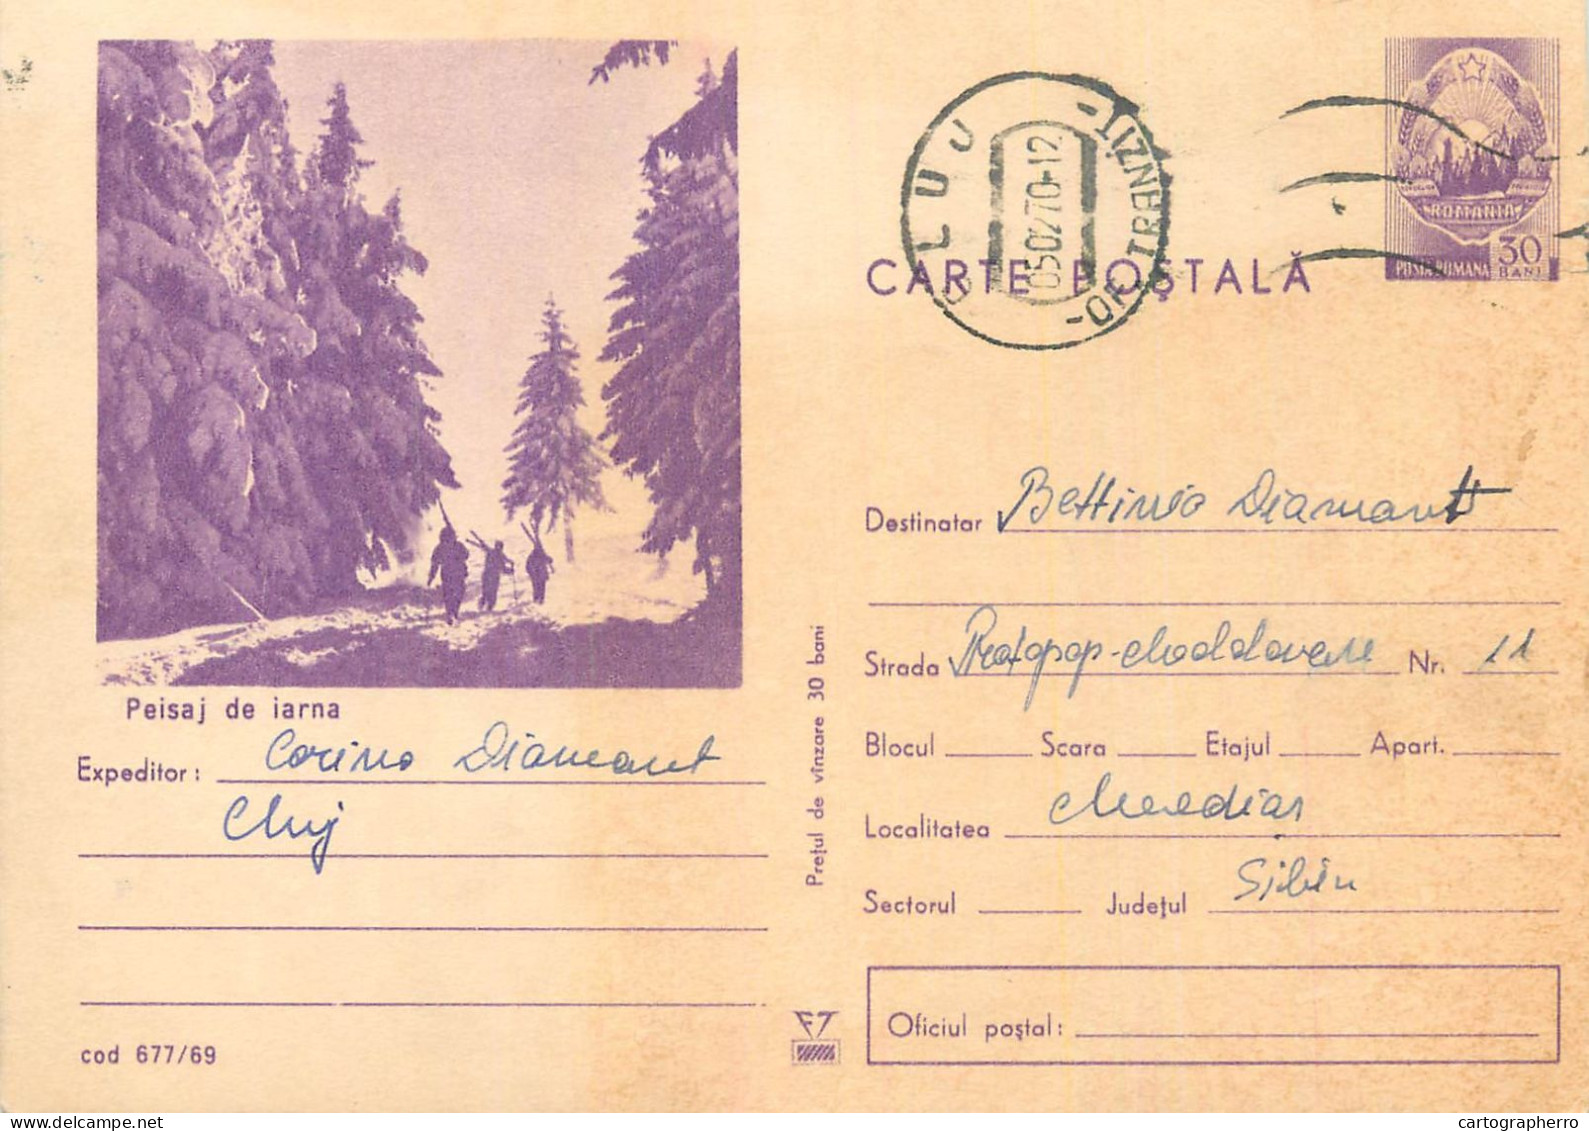 CARTE POȘTALĂ
CLUJ
-OF. TRENZIT-
05.02.70-12
ROMANIA
POSTA ROMANA
30
BANI
Peisaj de iarna
Expeditor: Corina Diamant
Cluj
cod 677/69
Prețul de vînzare 30 bani
Destinatar Bettinio Diamant
Strada Protopop Moldovan Nr. 11
Blocul Scara Etajul Apart.
Localitatea Medias
Sectorul Județul Sibiu
Oficiul poștal:
www.delcampe.net
cartographerro